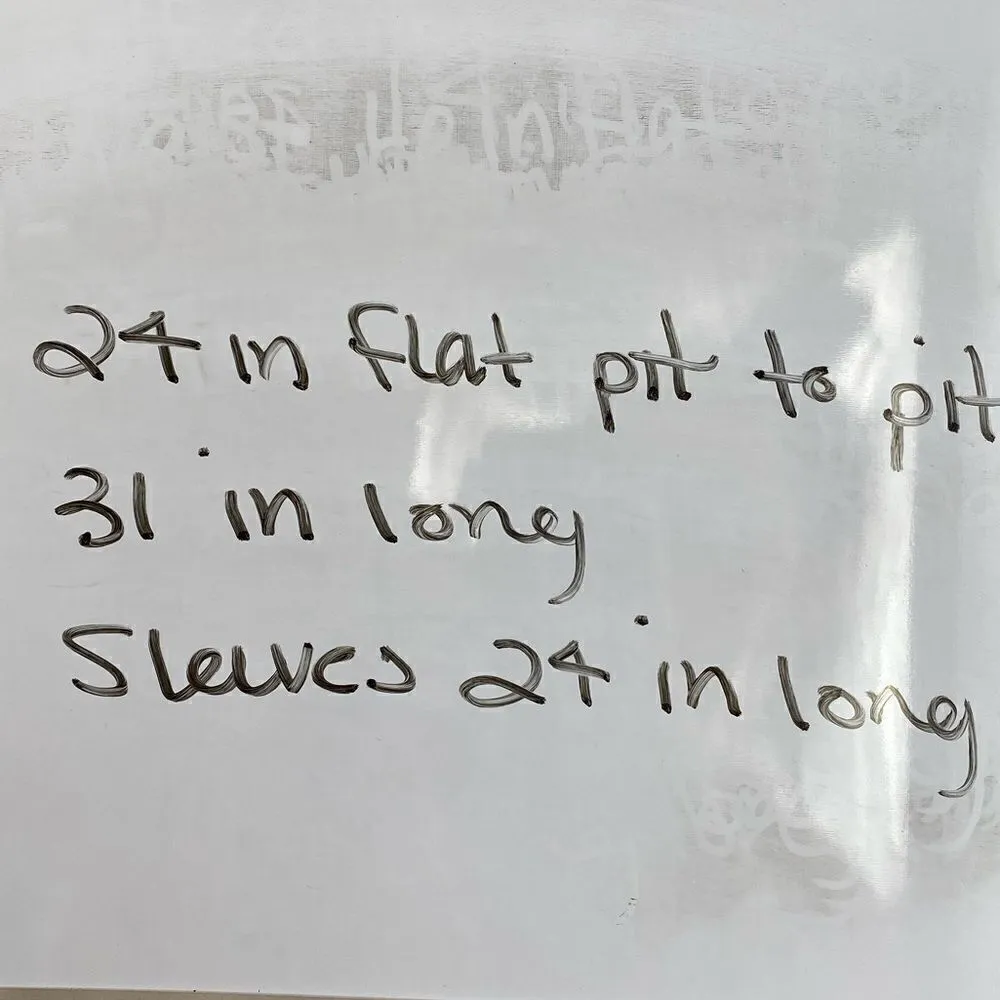 24 in flat pit to pit
31 in long
Sleeves 24 in long